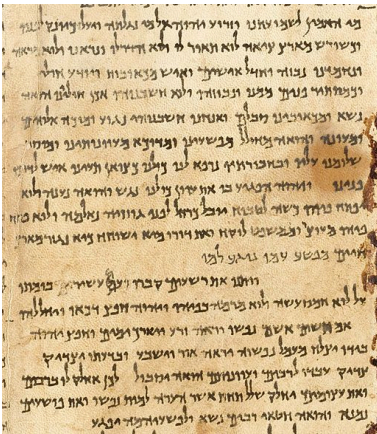 מי האמין לשמועתנו וזרוע יהוה אל מי נגלתה ויעל כיונק לפניו
וכשורש מארץ ציה לוא תואר לו ולוא הדר לו ונראנו ולוא מראה
ונחמדנו נבזה וחדל אישים ואיש מכאובות ויודע חולי
וכמסתיר פנים ממנו ונבוזהו ולוא חשבנוהו אכן חוליינו הואה
נשא ומכאובינו סבלם ואנחנו חשבנוהו נגוע ומוכה אלוהים
ומעונה והואה מחולל מפשעינו ומדוכא מעוונותינו ומוסר
שלומנו עליו ובחבורתיו נרפא לנו כולנו כצואן תעינו איש לדרכו
פנינו ויהוה הפגיע בו את עוון כולנו נגש והואה נענה ולוא
יפתח פיהו כשה לטבוח יובל כרחל לפני גוזזיה נאלמה ולוא פתח
פיהו מעוצר וממשפט לוקח ואת דורו מיא ישוחח כיא נגזר מארץ
חיים מפשע עמו נוגע למו
ויתנו את רשעים קברו ועם עשיר בומתו
על לוא חמס עשה ולוא מרמה בפיהו ויהוה חפץ דכאו ויחללהו
אם תשים אשם נפשו יראה זרע ויארך ימים וחפץ יהוה
בידו יצלח מעמל נפשוה יראה אור וישבע ובדעתו יצדיק
צדיק עבדו לרבים ועוונותם הואה יסבול לכן אחלק לו ברבים
ואת עצומים יחלק שלל תחת אשר הערה למות נפשו ואת פושעים
נמנא והואה חטאי רבים נשא ולפשעיהמה יפגע